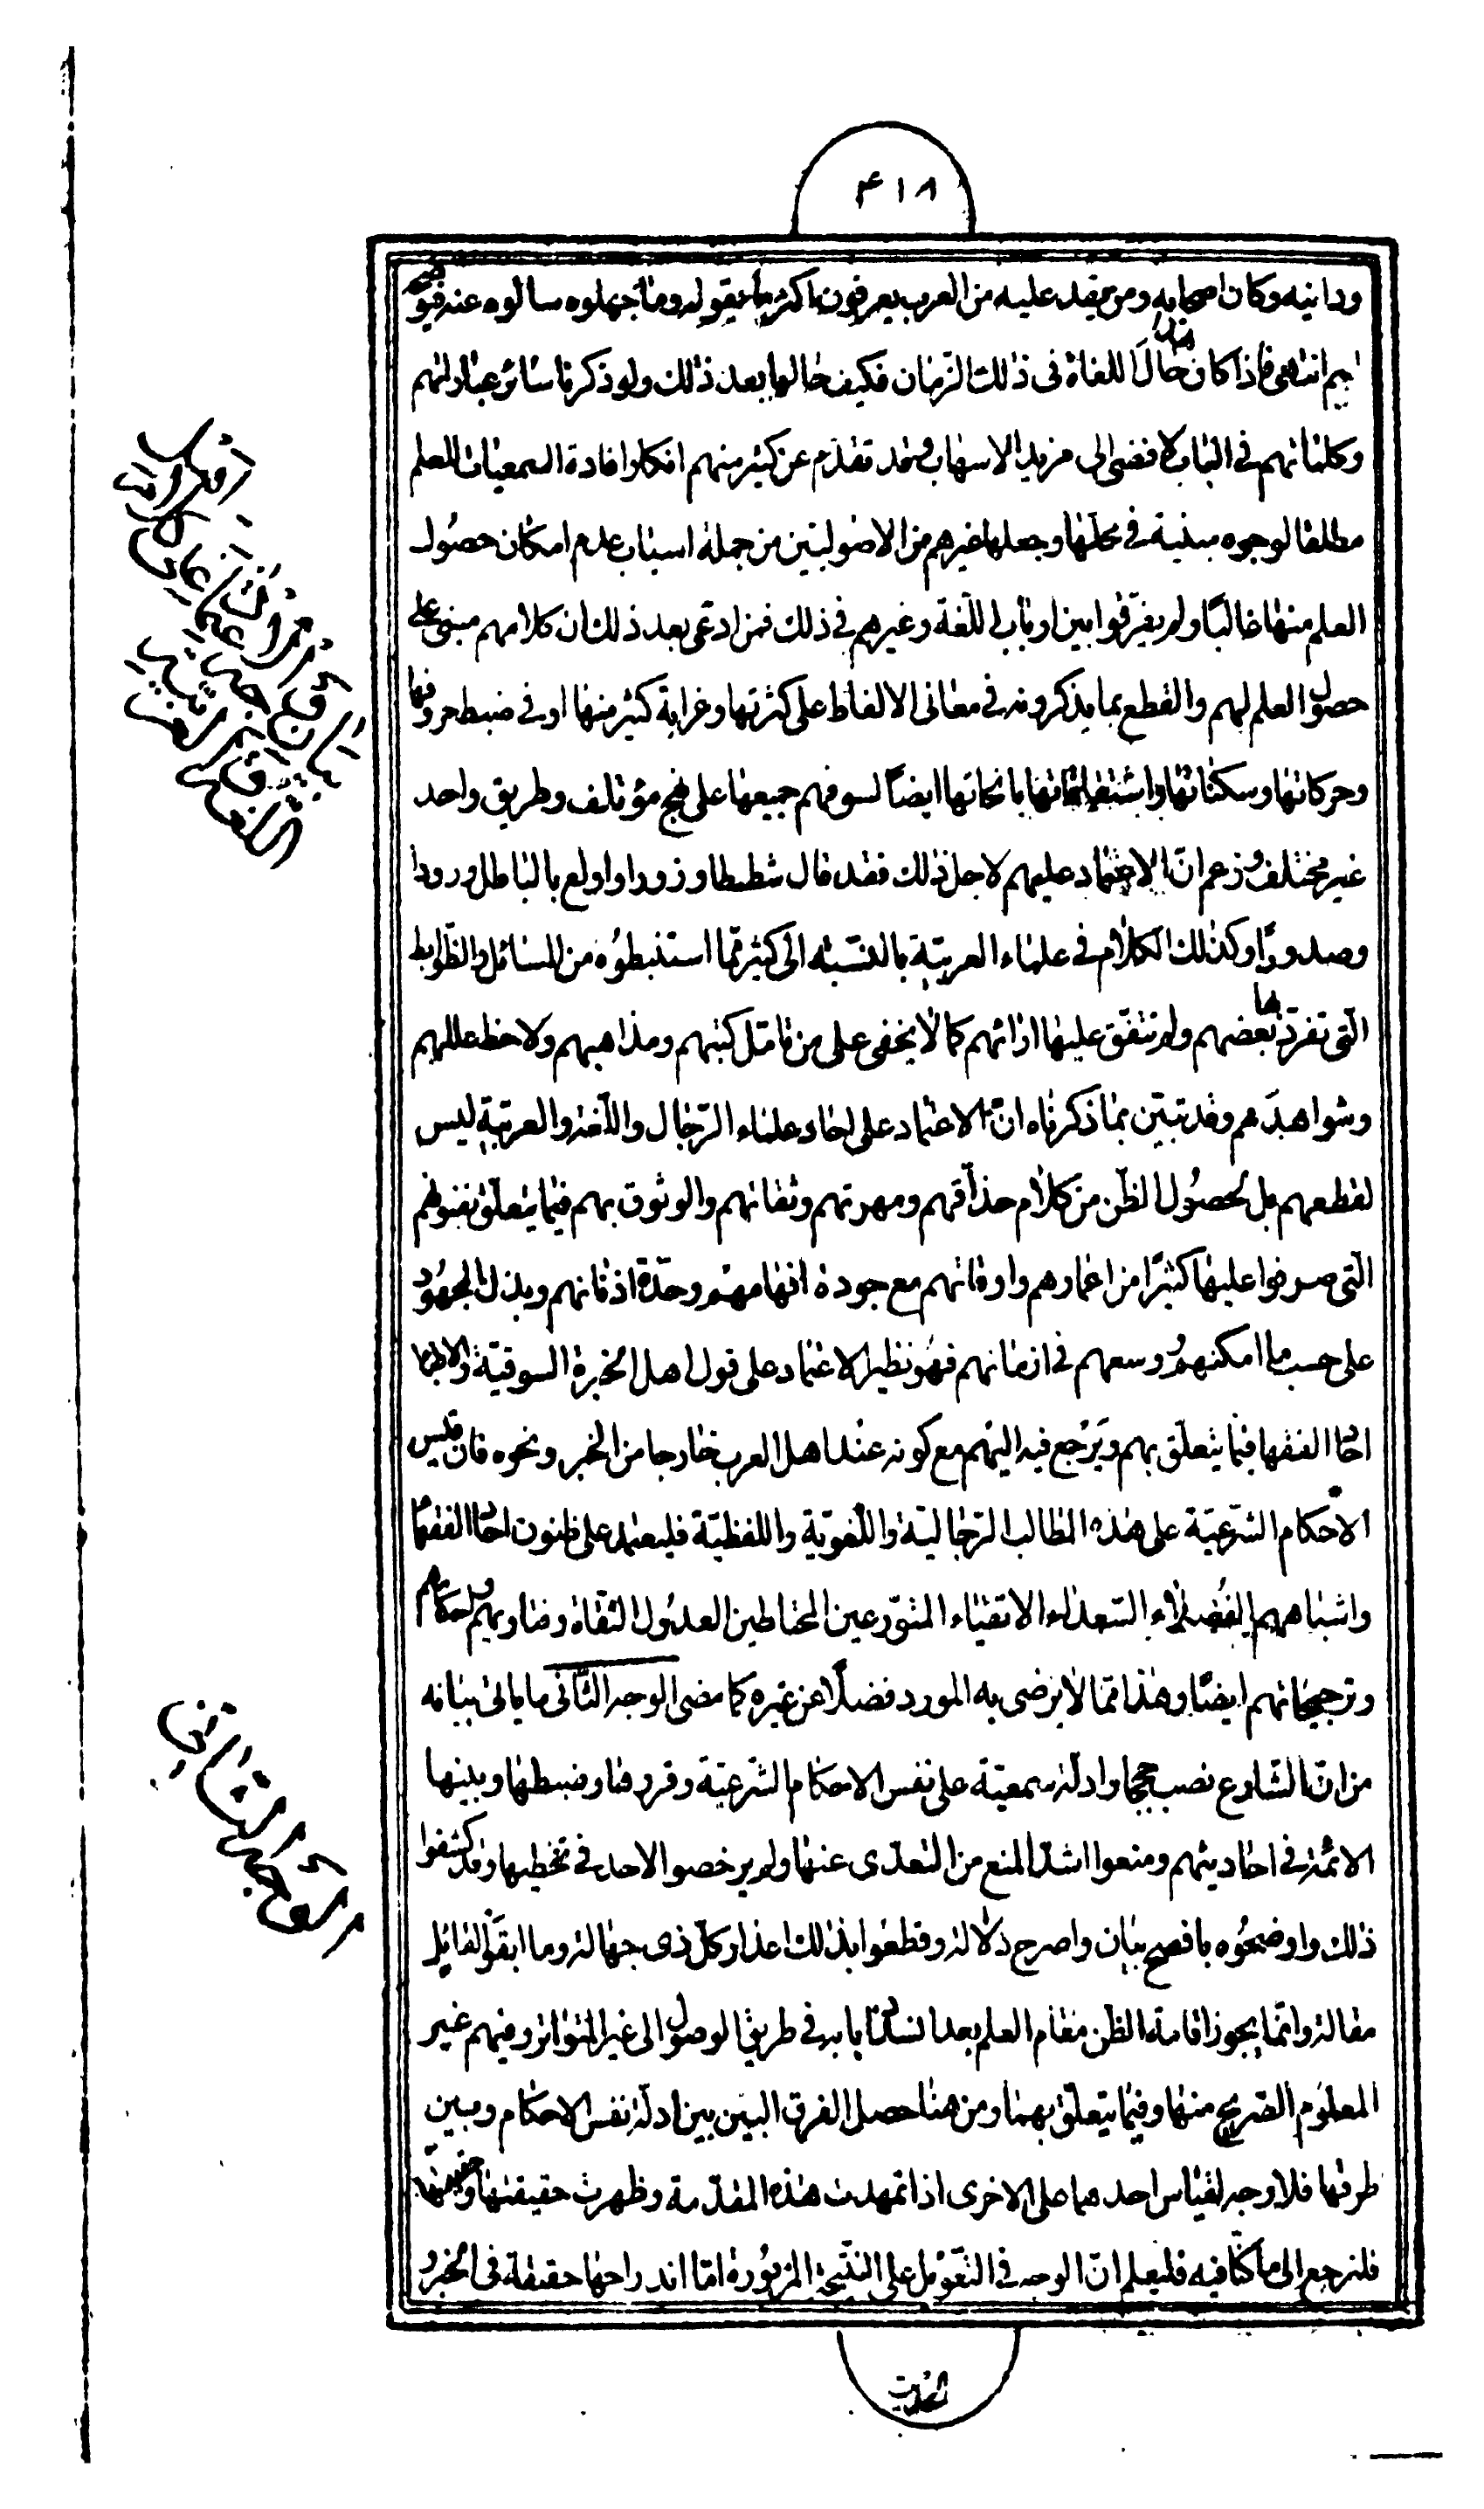 ۴۱۸
ودانيه وكان اصحابه ومن يفد عليه من العرب يعرفون اكثر ما يقوله وما جهلوه سالوه عنه فيوضحه
لهم انتهى فاذا كان هذا حال اللغاة في ذلك الزمان فكيف حالها بعد ذلك ولو ذكرنا سائر عباراتهم
وكلماتهم في الباب لافضى الى مزيد الاسهاب وقد تقدم عن كثير منهم انكار افادة السمعيات للعلم
مطلقا لوجوه مبنية في محلها وجعلها غيرهم من الاصوليين من جملة اسباب عدم امكان حصول
العلم منها غالبًا ولم يفرقوا بين ارباب اللغة وغيرهم في ذلك فمن ادعى بعد ذلك ان كلامهم مبنى على
حصول العلم لهم والقطع بما يذكرونه في معانى الالفاظ على كثرتها وغرابة كثير منها او في ضبط حروفها
وحركاتها وسكناتها واشتقاقاتها بانحائها ايضًا لسوقهم جميعها على نهج مؤتلف وطريق واحد
غير مختلف وزعم ان الاعتماد عليهم لاجل ذلك فقد قال شططا وزورا واولع بالباطل ورودا
وصدورًا وكذلك الكلام في علماء العربية بالنسبة الى كثير مما استنبطوه من المسائل والظوابط
التى تفرد بها بعضهم ولم تتفق عليها ارائهم كما لا يخفى على من تامّل كتبهم ومذاهبهم ولاحظ عللهم
وشواهدهم وقد تبيّن بما ذكرناه ان الاعتماد على احاد علماء الرجال واللغة والعربية ليس
لقطعهم بل لحصول الظن من كلام حذاقهم ومهرتهم وثقاتهم والوثوق بهم فيما يتعلق بفنونهم
التى صرفوا عليها كثيرًا من اعمارهم واوقاتهم مع جودة افهامهم وحدّة اذهانهم وبذل المجهود
على حسب ما امكنهم وسعهم في ازمانهم فهو نظير الاعتماد على قول اهل الخبرة السوقية والاطباء
احاد الفقها فيما يتعلق بهم ويرجع فيه اليهم مع كونه عند اهل العرب خارجا من الخبر ونحوه فان قيس
الاحكام الشرعيّة على هذه المطالب الرجالية واللّغوية واللفظيّة فليعتمد على ظنون احاد الفقهاء
واشباههم الفضلاء السعداء الاتقياء المتورعين المحتاطين العدول الثقاة وفتاويهم
وترجيحاتهم ايضًا وهذا مما لا يرضى به المورد فضلًا عن غيره كما مضى الوجه الثانى ما ياتى بيانه
من ان الشارع نصب حججا وادلة سمعية على نفس الاحكام الشرعيّة وقررها وضبطها وبينها
الائمة في احاديثهم ومنعوا اشد المنع من التعدّى عنها ولم يرخصوا الاحد في تخطيها وقد كشفوا
ذلك واوضحوه بافصح بيان واصرح دلالة وقطعوا بذلك اعذار كل ذى جهالة وما ابقوا لقائل
مقالة وانما يجوز اقامة الظن مقام العلم بعد انسداد بابه في طريق الوصول الى غير المتواتر وفيهم غير
المعلوم الصريح منها وفيما يتعلق بهما ومن هنا حصل الفرق البين بين ادلة نفس الاحكام وبين
طرقها فلا وجه لقياس احدهما على الاخرى اذا تمهدت هذه المقدّمة وظهرت حقيقتها
فلنرجع الى ما كنا فيه فليعلم ان الوجه في التعويل على النتيجة المزبورة امّا اندراجها حقيقة في الخبر و
الحديث